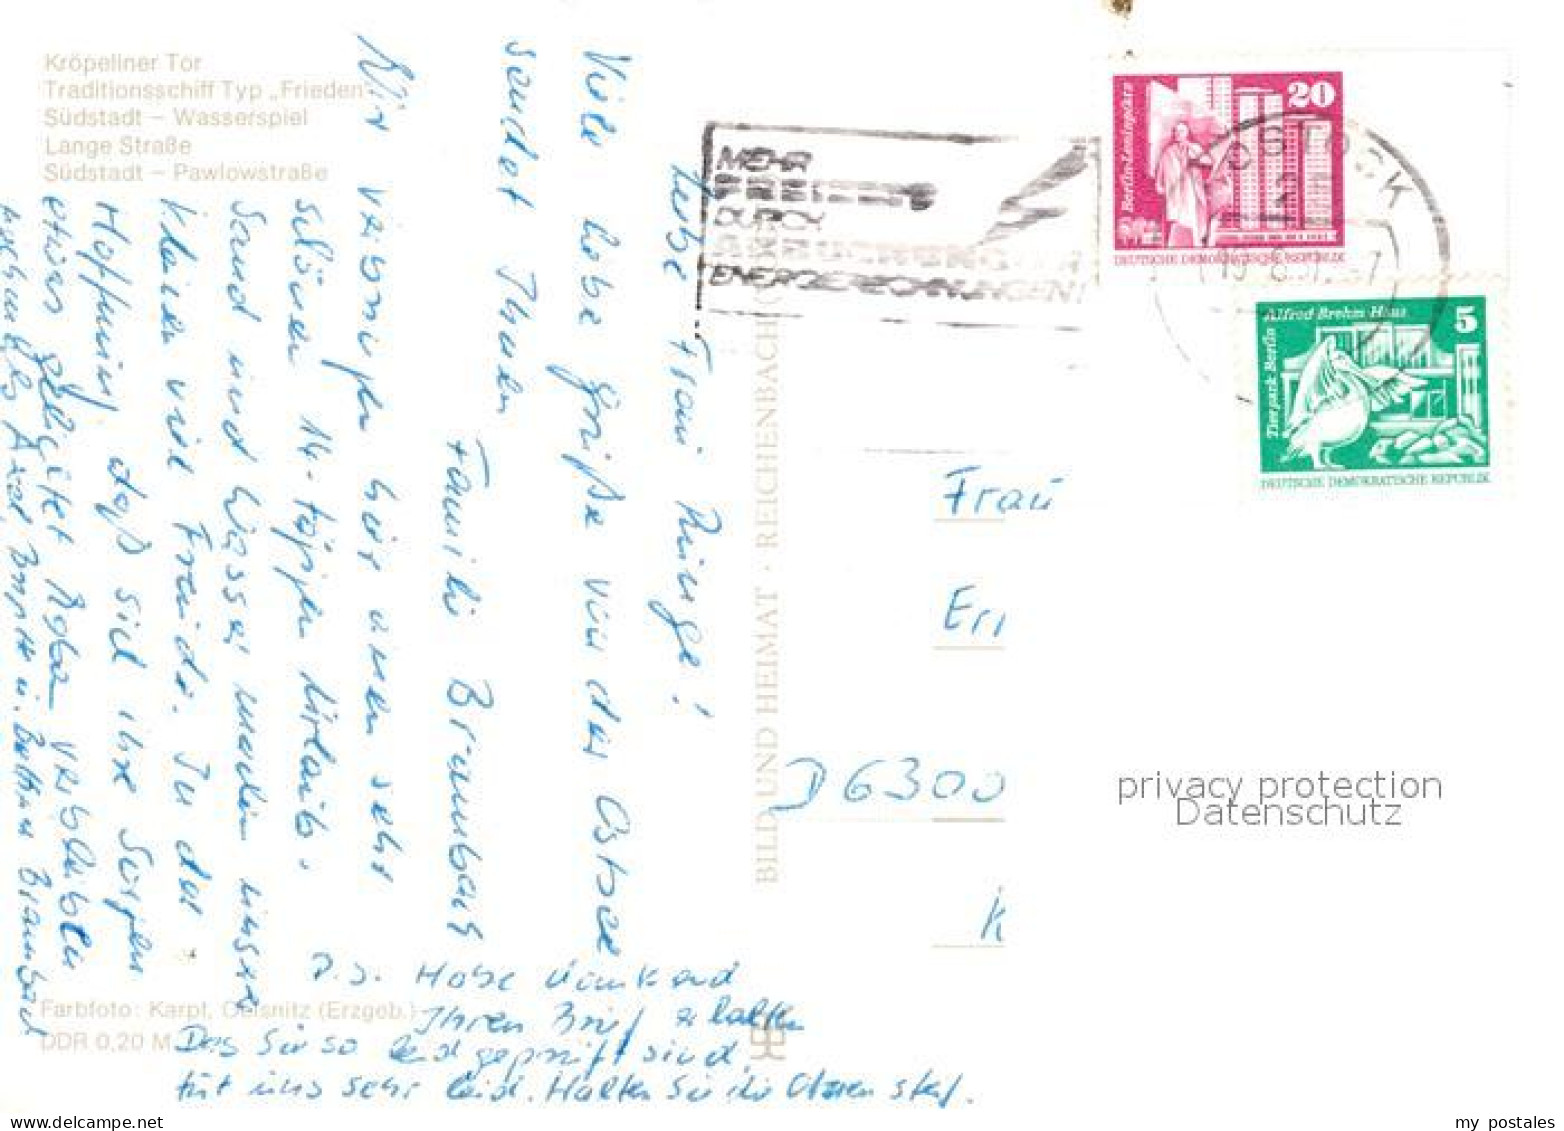 Kröpeliner Tor
Traditionsschiff Typ „Frieden"
Südstadt – Wasserspiel
Lange Straße
Südstadt – Pawlowstraße
MEHR
DURCH
ENERGIEBERECHNUNGEN!
20
Berlin-Leninplatz
DEUTSCHE DEMOKRATISCHE REPUBLIK
ROSTOCK
5
Alfred Brehm Haus
Tierpark Berlin
DEUTSCHE DEMOKRATISCHE REPUBLIK
Liebe Frau Runge!
Viele liebe Grüße von der Ostsee
sendet Ihnen
Familie Braunbach
Wir verbringen hier einen sehr
schönen 14-tägigen Urlaub.
Sand und Wasser machen unsere
Kleinen viel Freude. In der
Hoffnung, daß sich ihre Sorgen
etwas gelichtet haben verbleiben
u. Braunbach
P.S. Habe dankend
Ihren Brief erhalten
Das Sie so leidgeprüft sind,
tut uns sehr leid. Halten Sie die Ohren steif.
BILD UND HEIMAT · REICHENBACH
Frau
Err
D 6300
K
Farbfoto: Karpf, Oelsnitz (Erzgeb.)
DDR 0,20 M
privacy protection
Datenschutz
my postales